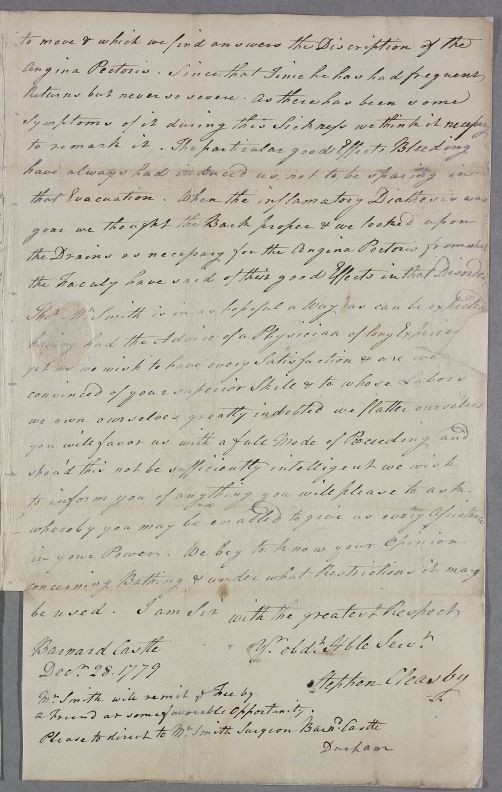 to move & which we find answers the Discription of the
Angina Pectoris. Since that Time he has had frequent
Returns but never so severe. As there has been some
Symptoms of it during this Sickness we think it necessary
to remark it. The particular good Effects Bleeding
have always had induced us not to be sparing in
that Evacuation. When the inflamatory Diathesis was
gone we thought the Bark proper & we looked upon
the Drains as necessary for the Angina Pectoris from what
the Faculy have said of their good Effects in that Disorder
Tho' Mr. Smith is in as hopeful a Way as can be expected
having had the Advice of a Physician of long Experience
yet as we wish to have every Satisfaction & are well
convinced of your superior Skill & to whose Labors
we own ourselves greatly indebted we flatter ourselves
you will favor us with a full Mode of Proceeding and
shou'd this not be sufficiently intelligent we wish
to inform you of anything you will please to ask
whereby you may be enabled to give us every Assistance
in your Power. We beg to know your Opinion
concerning Bathing & under what Restrictions it may
be used. I am Sir with the greatest Respect
Yr. obdt. Hble Servt.
Barnard Castle
Decr. 28. 1779
Stephen Cleasby
Mr. Smith will remit ye Fee by
a Friend or some favorable Opportunity.
Please to direct to Mr. Smith Surgeon Barnd. Castle
Durham